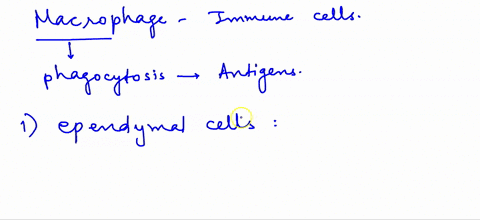 Macrophage - Immune cells.
↓
phagocytosis → Antigens.
1) ependymal cells :